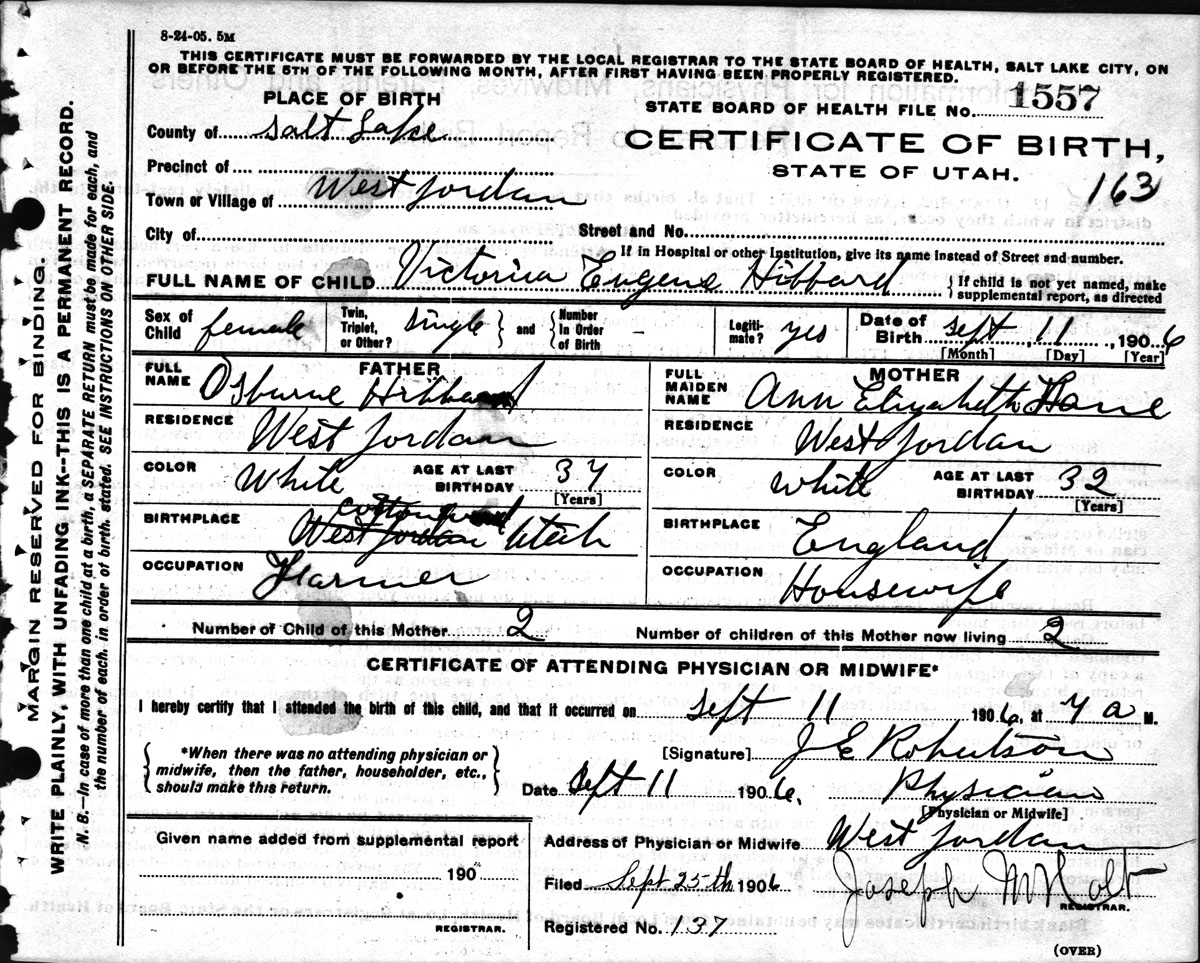 8-24-05. 5M
THIS CERTIFICATE MUST BE FORWARDED BY THE LOCAL REGISTRAR TO THE STATE BOARD OF HEALTH, SALT LAKE CITY, ON
OR BEFORE THE 5TH OF THE FOLLOWING MONTH, AFTER FIRST HAVING BEEN PROPERLY REGISTERED.
PLACE OF BIRTH
STATE BOARD OF HEALTH FILE No. 1557
County of Salt Lake
CERTIFICATE OF BIRTH,
STATE OF UTAH.
163
Precinct of
Town or Village of West Jordan
City of
Street and No.
If in Hospital or other Institution, give its name instead of Street and number.
FULL NAME OF CHILD Victorina Eugene Hibbard
{ If child is not yet named, make
supplemental report, as directed
Sex of Child female
Twin, Triplet, or Other? single } and { Number In Order of Birth -
Legitimate? yes
Date of Birth Sept, 11, 1906
[Month] [Day] [Year]
FATHER
FULL NAME Osburne Hibbard
RESIDENCE West Jordan
COLOR White
AGE AT LAST BIRTHDAY 37
[Years]
BIRTHPLACE West Jordan Cottonwood Utah
OCCUPATION Farmer
MOTHER
FULL MAIDEN NAME Ann Elizabeth
RESIDENCE West Jordan
COLOR white
AGE AT LAST BIRTHDAY 32
[Years]
BIRTHPLACE England
OCCUPATION Housewife
Number of Child of this Mother 2
Number of children of this Mother now living 2
CERTIFICATE OF ATTENDING PHYSICIAN OR MIDWIFE*
I hereby certify that I attended the birth of this child, and that it occurred on Sept 11 1906, at 7 a M.
{ *When there was no attending physician or
midwife, then the father, householder, etc.,
should make this return. }
[Signature] J E Robertson
Date Sept 11 1906, Physician
[Physician or Midwife]
Given name added from supplemental report
190
REGISTRAR.
Address of Physician or Midwife West Jordan
Filed Sept 25th 1906 Joseph M Holt
REGISTRAR.
Registered No. 137
(OVER)
MARGIN RESERVED FOR BINDING
WRITE PLAINLY, WITH UNFADING INK--THIS IS A PERMANENT RECORD.
N. B.--In case of more than one child at a birth, a SEPARATE RETURN must be made for each, and
the number of each, in order of birth, stated. SEE INSTRUCTIONS ON OTHER SIDE.